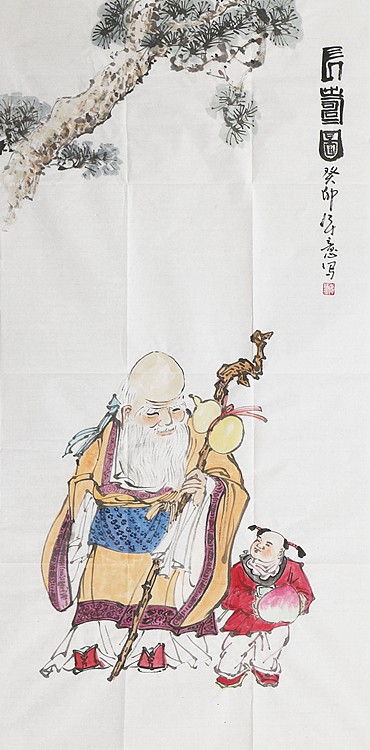 長壽圖
癸卯意写